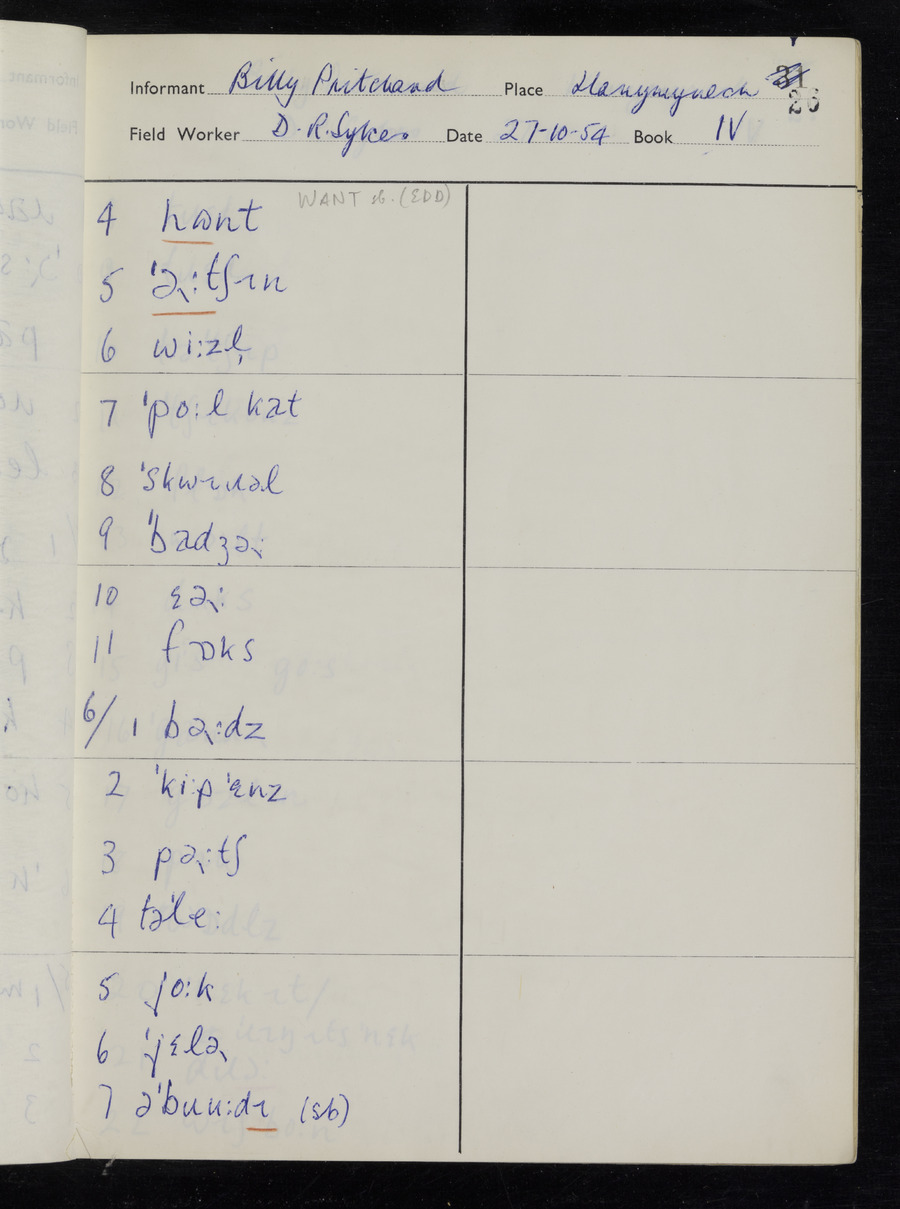 Informant Billy Pritchard Place Llanymynech 31
26
Field Worker D.R. Sykes Date 27-10-54 Book IV
WANT sb. (EDD)
4 hɒnt
5 ˈəɹːtʃɪn
6 wiːzl̩
7 ˈpoːl kat
8 ˈskwɪɹəl
9 ˈbadʒəɹ
10 ɛəɹː
11 fɒks
6/1 bəɹːdz
2 ˈkiːpˈɛnz
3 pəɹːtʃ
4 təˈleː
5 joːk
6 ˈjɛləɹ
7 əˈbuuːdɪ (sb)